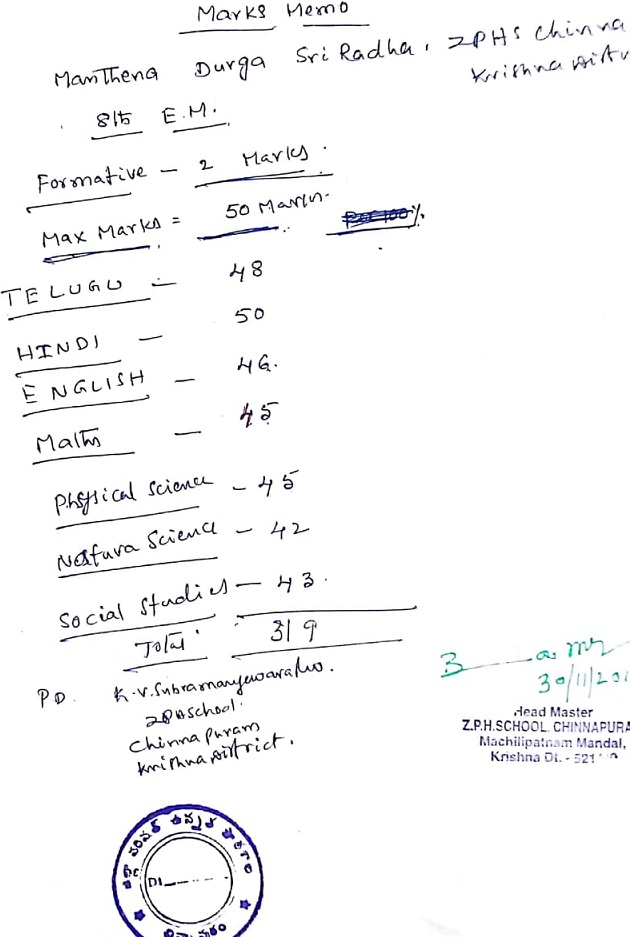 Marks Memo
Manthena Durga Sri Radha, ZPHS Chinna
Krishna
8th E.M.
Formative - 2 Marks.
Max Marks = 50 Marks.
TELUGU - 48
HINDI - 50
ENGLISH - 46.
Maths - 45
Physical Science - 45
Natura Science - 42
Social Studies - 43.
Total 319
P.D. K.V. Subramanyewararao.
ZPHSchool.
Chinnapuram
Krishna District.
30/11/201
Head Master
Z.P.H.SCHOOL. CHINNAPURA
Machilipatnam Mandal,
Krishna Dt. - 521